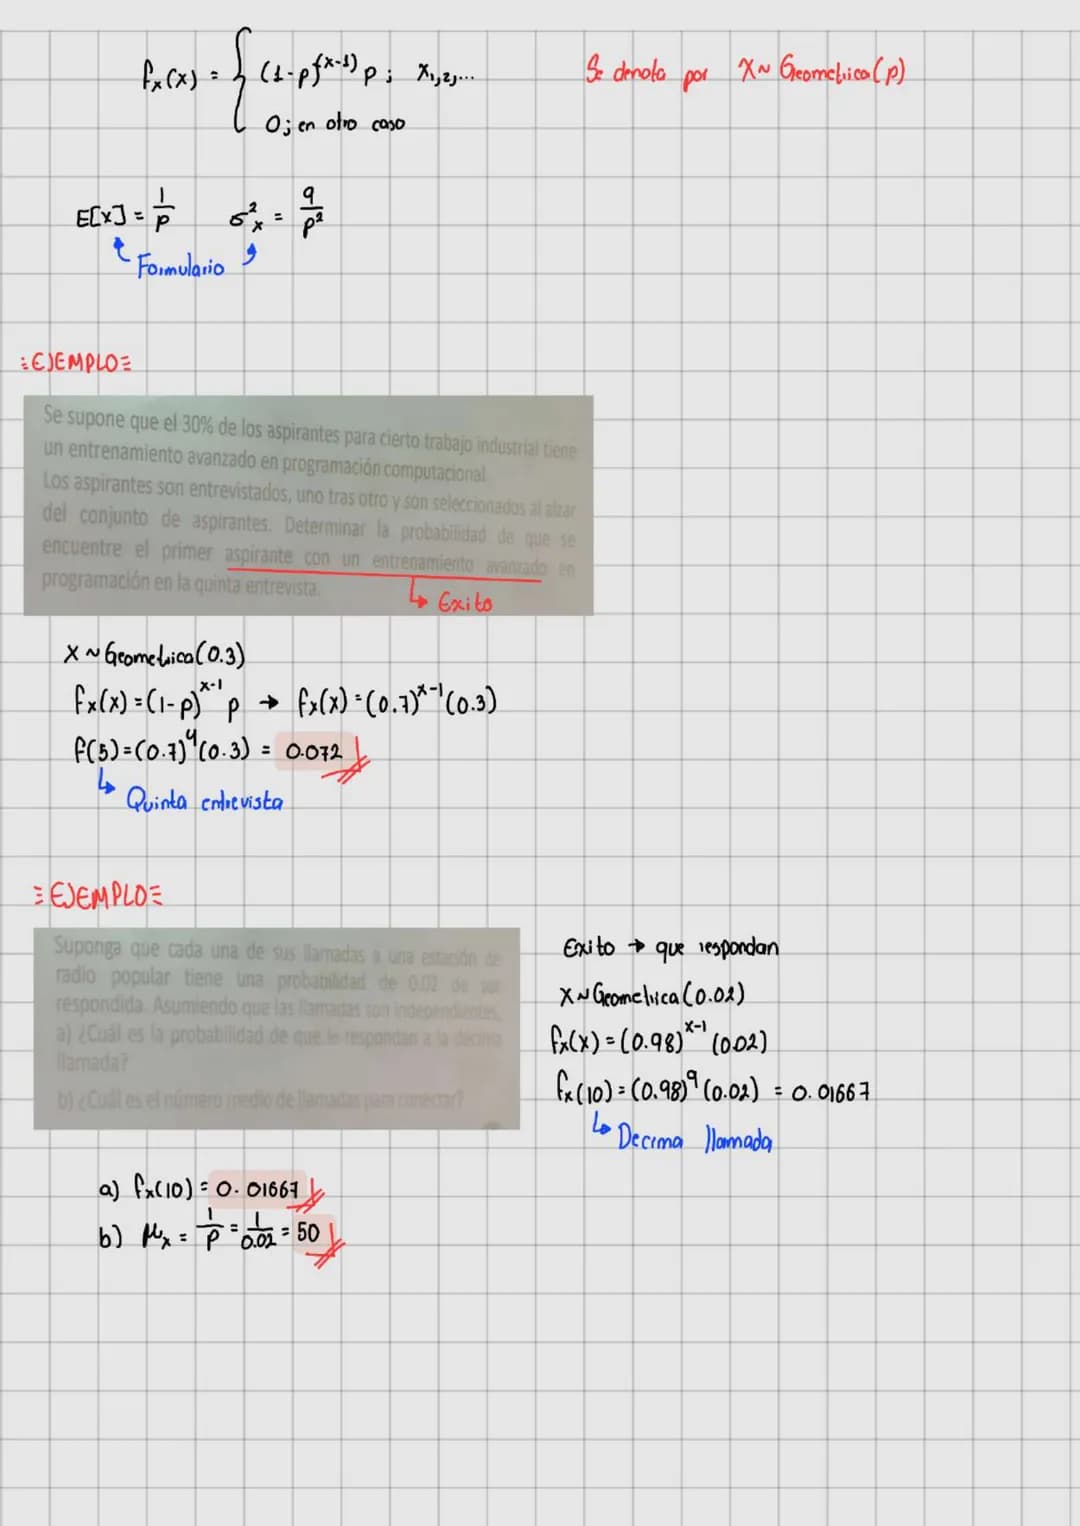 fx(x) = { (1-p)^(x-1) p ; x1,2,...
0; en otro caso
Se denota por X~Geometrica(p)
E[x] = 1/p σ²x = q/p²
Formulario
=EJEMPLO=
Se supone que el 30% de los aspirantes para cierto trabajo industrial tiene
un entrenamiento avanzado en programación computacional.
Los aspirantes son entrevistados, uno tras otro y son seleccionados al alzar
del conjunto de aspirantes. Determinar la probabilidad de que se
encuentre el primer aspirante con un entrenamiento avanzado en
programación en la quinta entrevista.
↳ Exito
X ~ Geometrica(0.3)
fx(x) = (1-p)^x-1 p → fx(x) = (0.7)^x-1 (0.3)
f(5) = (0.7)^4 (0.3) = 0.072
↳ Quinta entrevista
=EJEMPLO=
Suponga que cada una de sus llamadas a una estación de
radio popular tiene una probabilidad de 0.02 de ser
respondida. Asumiendo que las llamadas son independientes,
a) ¿Cuál es la probabilidad de que le respondan a la décima
llamada?
b) ¿Cuál es el número medio de llamadas para conectar?
Exito → que respondan
X~Geometrica(0.02)
fx(x) = (0.98)^x-1 (0.02)
fx(10) = (0.98)^9 (0.02) = 0.01667
↳ Decima llamada
a) fx(10) = 0.01667
b) μx = 1/p = 1/0.02 = 50